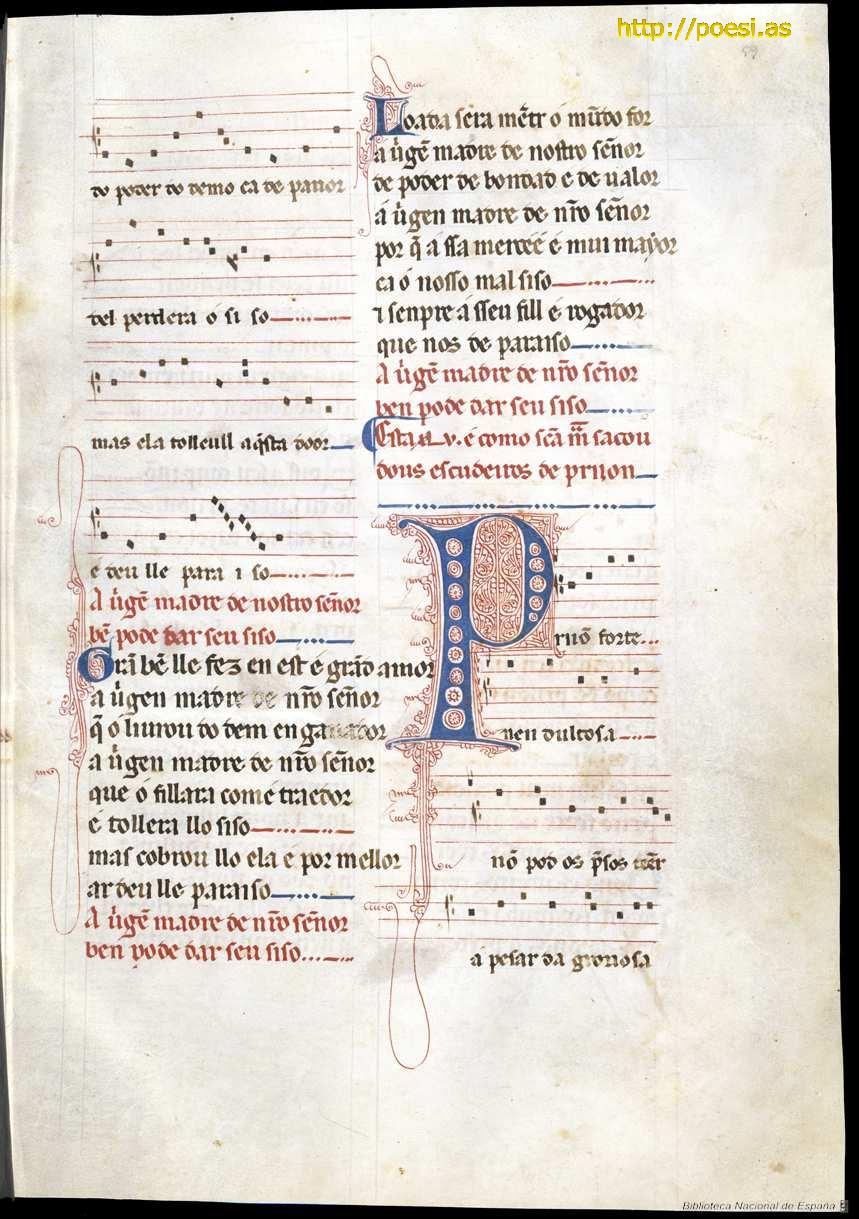 http://poesi.as
59
do poder do demo ca de pauor
del perdera o si so
mas ela tolleull aq̃sta door
e deu lle para i so
A uirgẽ madre de nostro señor
bẽ pode dar seu siso
Grã bẽ lle fez en est e grãd amor
a uirgen madre de nr̃o señor
q̃ o liurou do dem enganador
a uirgen madre de nr̃o señor
que o fillara come traedor
e tollera llo siso
mas cobrou llo ela e por mellor
ar deu lle paraiso
A uirgẽ madre de nr̃o señor
ben pode dar seu siso
Loada sera mẽtr o mũdo for
a uirgẽ madre de nostro señor
de poder de bondad e de ualor
a uirgen madre de nr̃o señor
por q̃ a ssa mercee e mui mayor
ca o nosso mal siso
ı senpre a sseu fill e rogador
que nos de paraiso
A uirgẽ madre de nr̃o señor
ben pode dar seu siso
Esta .v. e como scã m̃ sacou
dous escudeiros de prijon
Prijõ forte
nen dultosa
nõ pod os p̃sos teer
a pesar da groriosa
Biblioteca Nacional de España